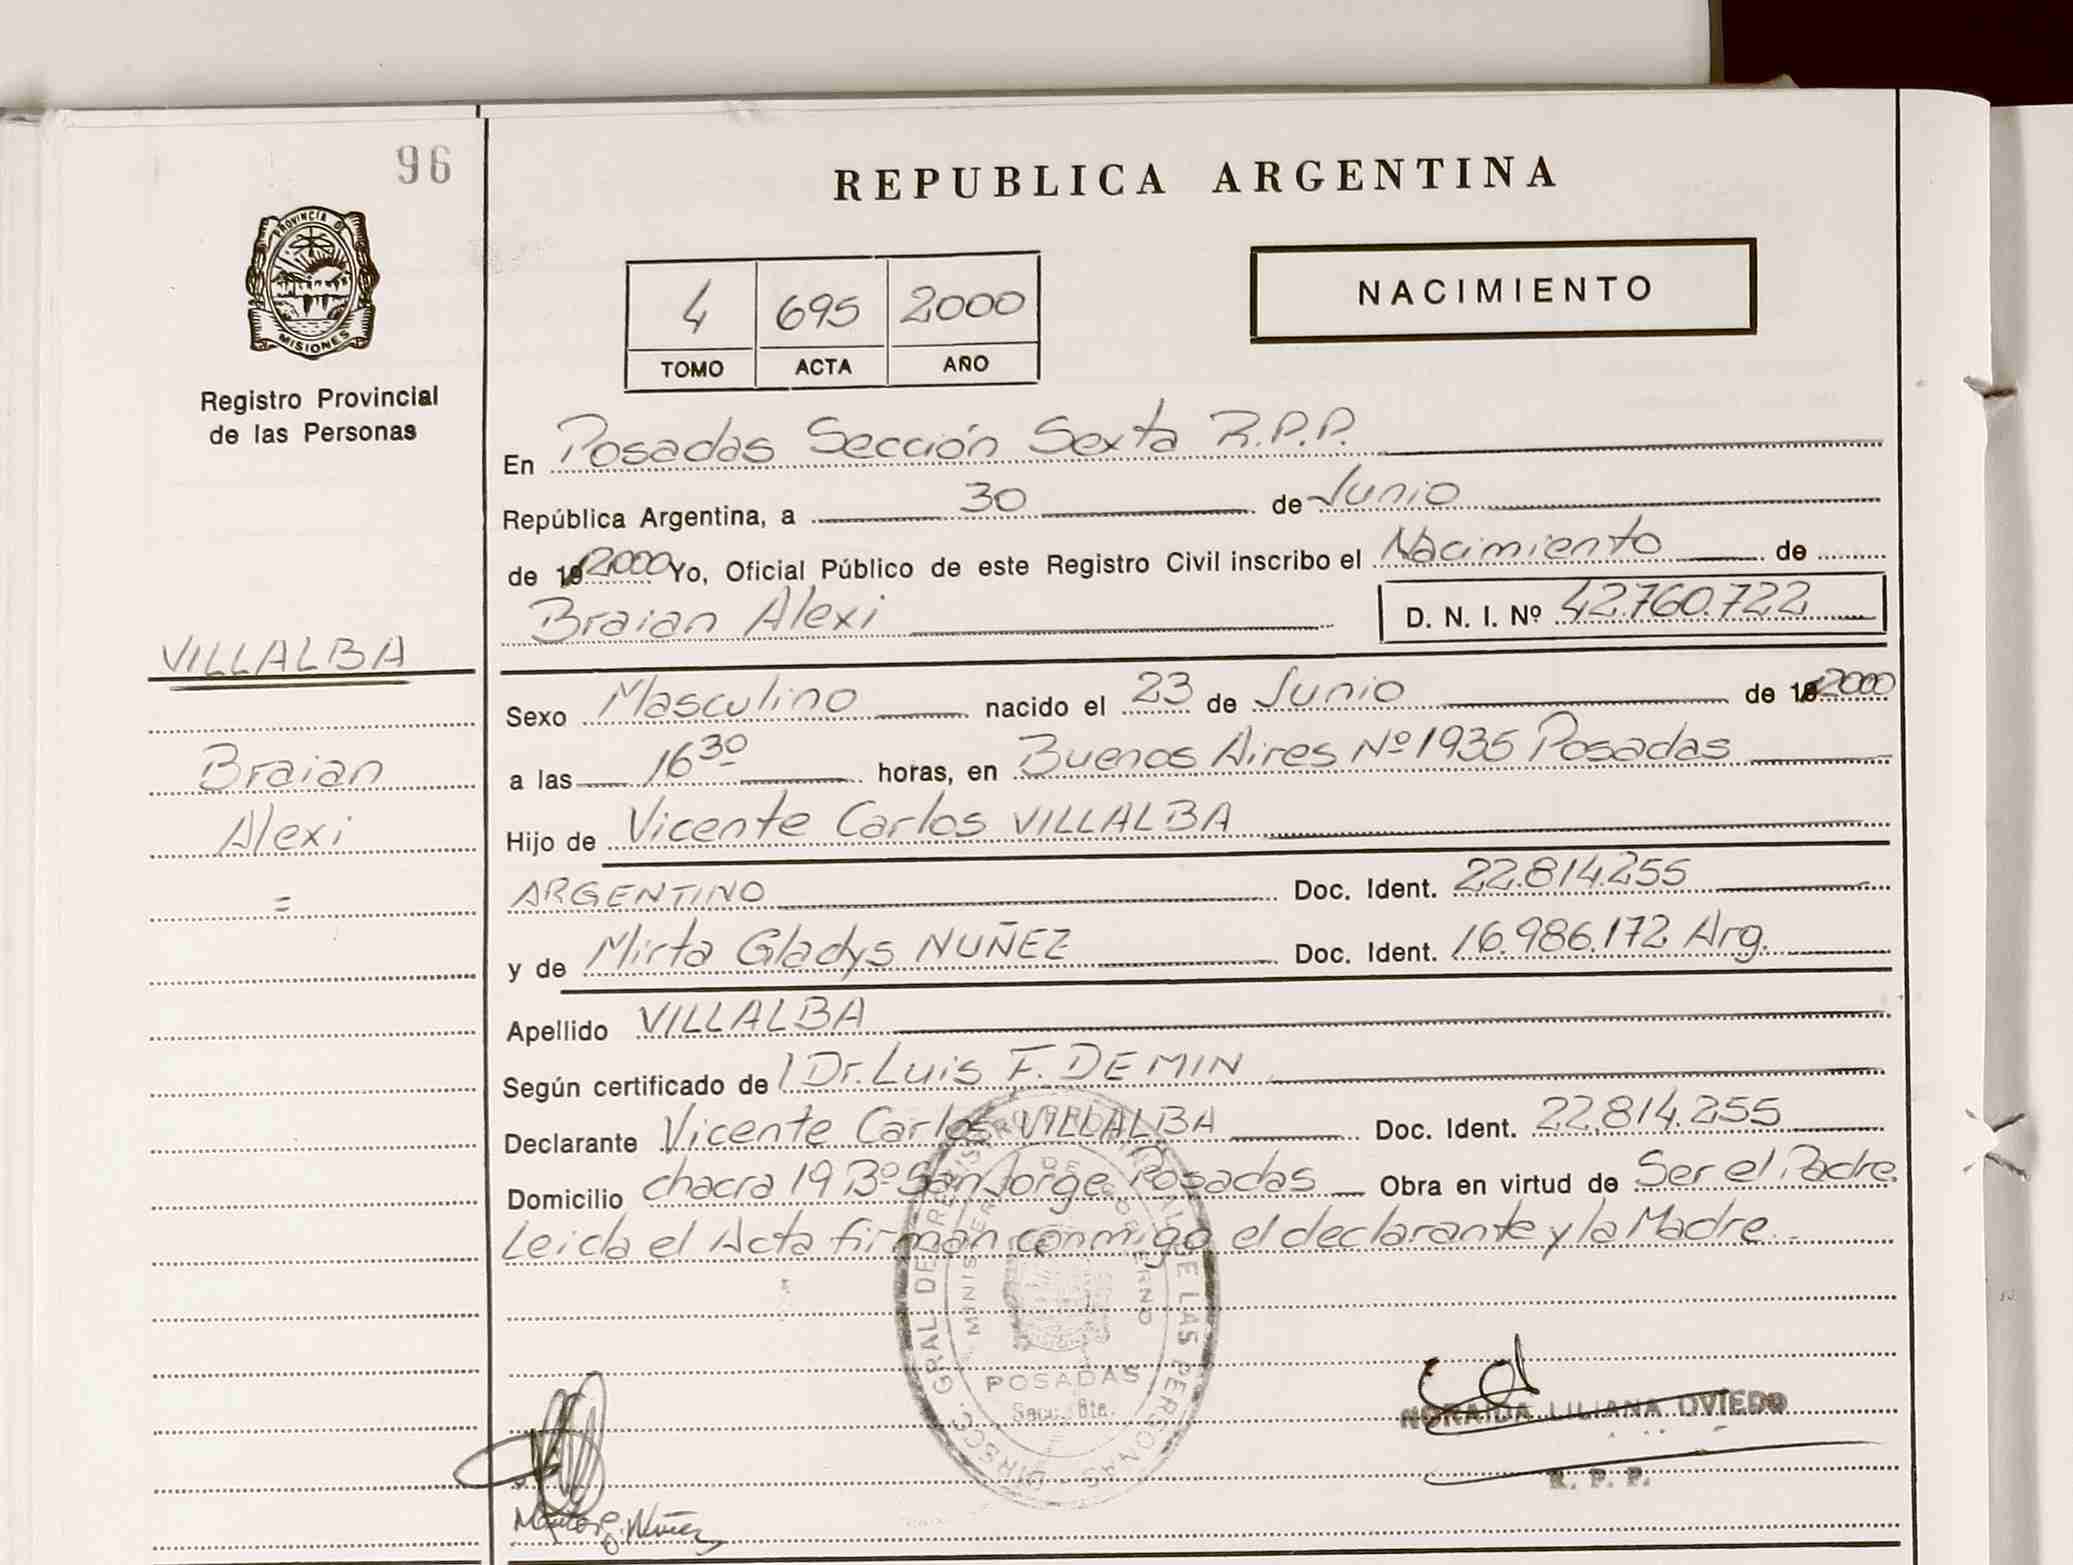 96
PROVINCIA DE
MISIONES
Registro Provincial
de las Personas
VILLALBA
Braian
Alexi
=
REPUBLICA ARGENTINA
4 695 2000
TOMO ACTA AÑO
NACIMIENTO
En Posadas Sección Sexta R.P.P.
República Argentina, a 30 de Junio
de 192000 Yo, Oficial Público de este Registro Civil inscribo el Nacimiento de
Braian Alexi D. N. I. Nº 42.760.722
Sexo Masculino nacido el 23 de Junio de 192000
a las 16 30 horas, en Buenos Aires Nº 1935 Posadas
Hijo de Vicente Carlos VILLALBA
ARGENTINO Doc. Ident. 22.814.255
y de Mirta Gladys NUÑEZ Doc. Ident. 16.986.172 Arg.
Apellido VILLALBA
Según certificado de l Dr. Luis F. DEMIN
Declarante Vicente Carlos VILLALBA Doc. Ident. 22.814.255
Domicilio chacra 19 Bº San Jorge Posadas Obra en virtud de Ser el Padre
Leida el Acta firman conmigo el declarante y la Madre
DIRECC. GRAL. DE REGISTRO PROVINCIAL DE LAS PERSONAS
MINISTERIO DE GOBIERNO
POSADAS
Secc. 6ta.
NORAIDA LILIANA OVIEDO
R. P. P.
Nuñez